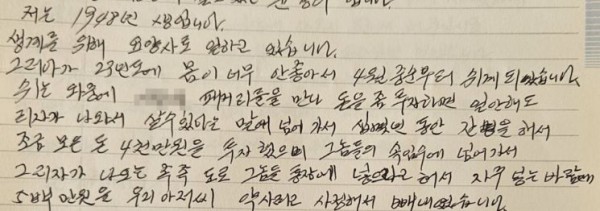 저는 1948년 생입니다.
생계를 위해 요양사로 일하고 있습니다.
그러다가 23년도에 몸이 너무 안좋아서 4월 중순부터 쉬게 되었습니다.
쉬는 와중에 패거리들을 만나 돈을 좀 투자하면 일안해도
이자가 나와서 살수있다는 말에 넘어 가서 십몇년 동안 간병을 해서
조금 모은 돈 4천만원을 투자 했으며 그놈들의 속임수에 넘어가서
그 이자가 나오는 족족 도로 그놈들 통장에 넣으라고 해서 자꾸 넣는 바람에
5백 만원을 우리 아저씨 약사라고 사정해서 빼내었습니다.